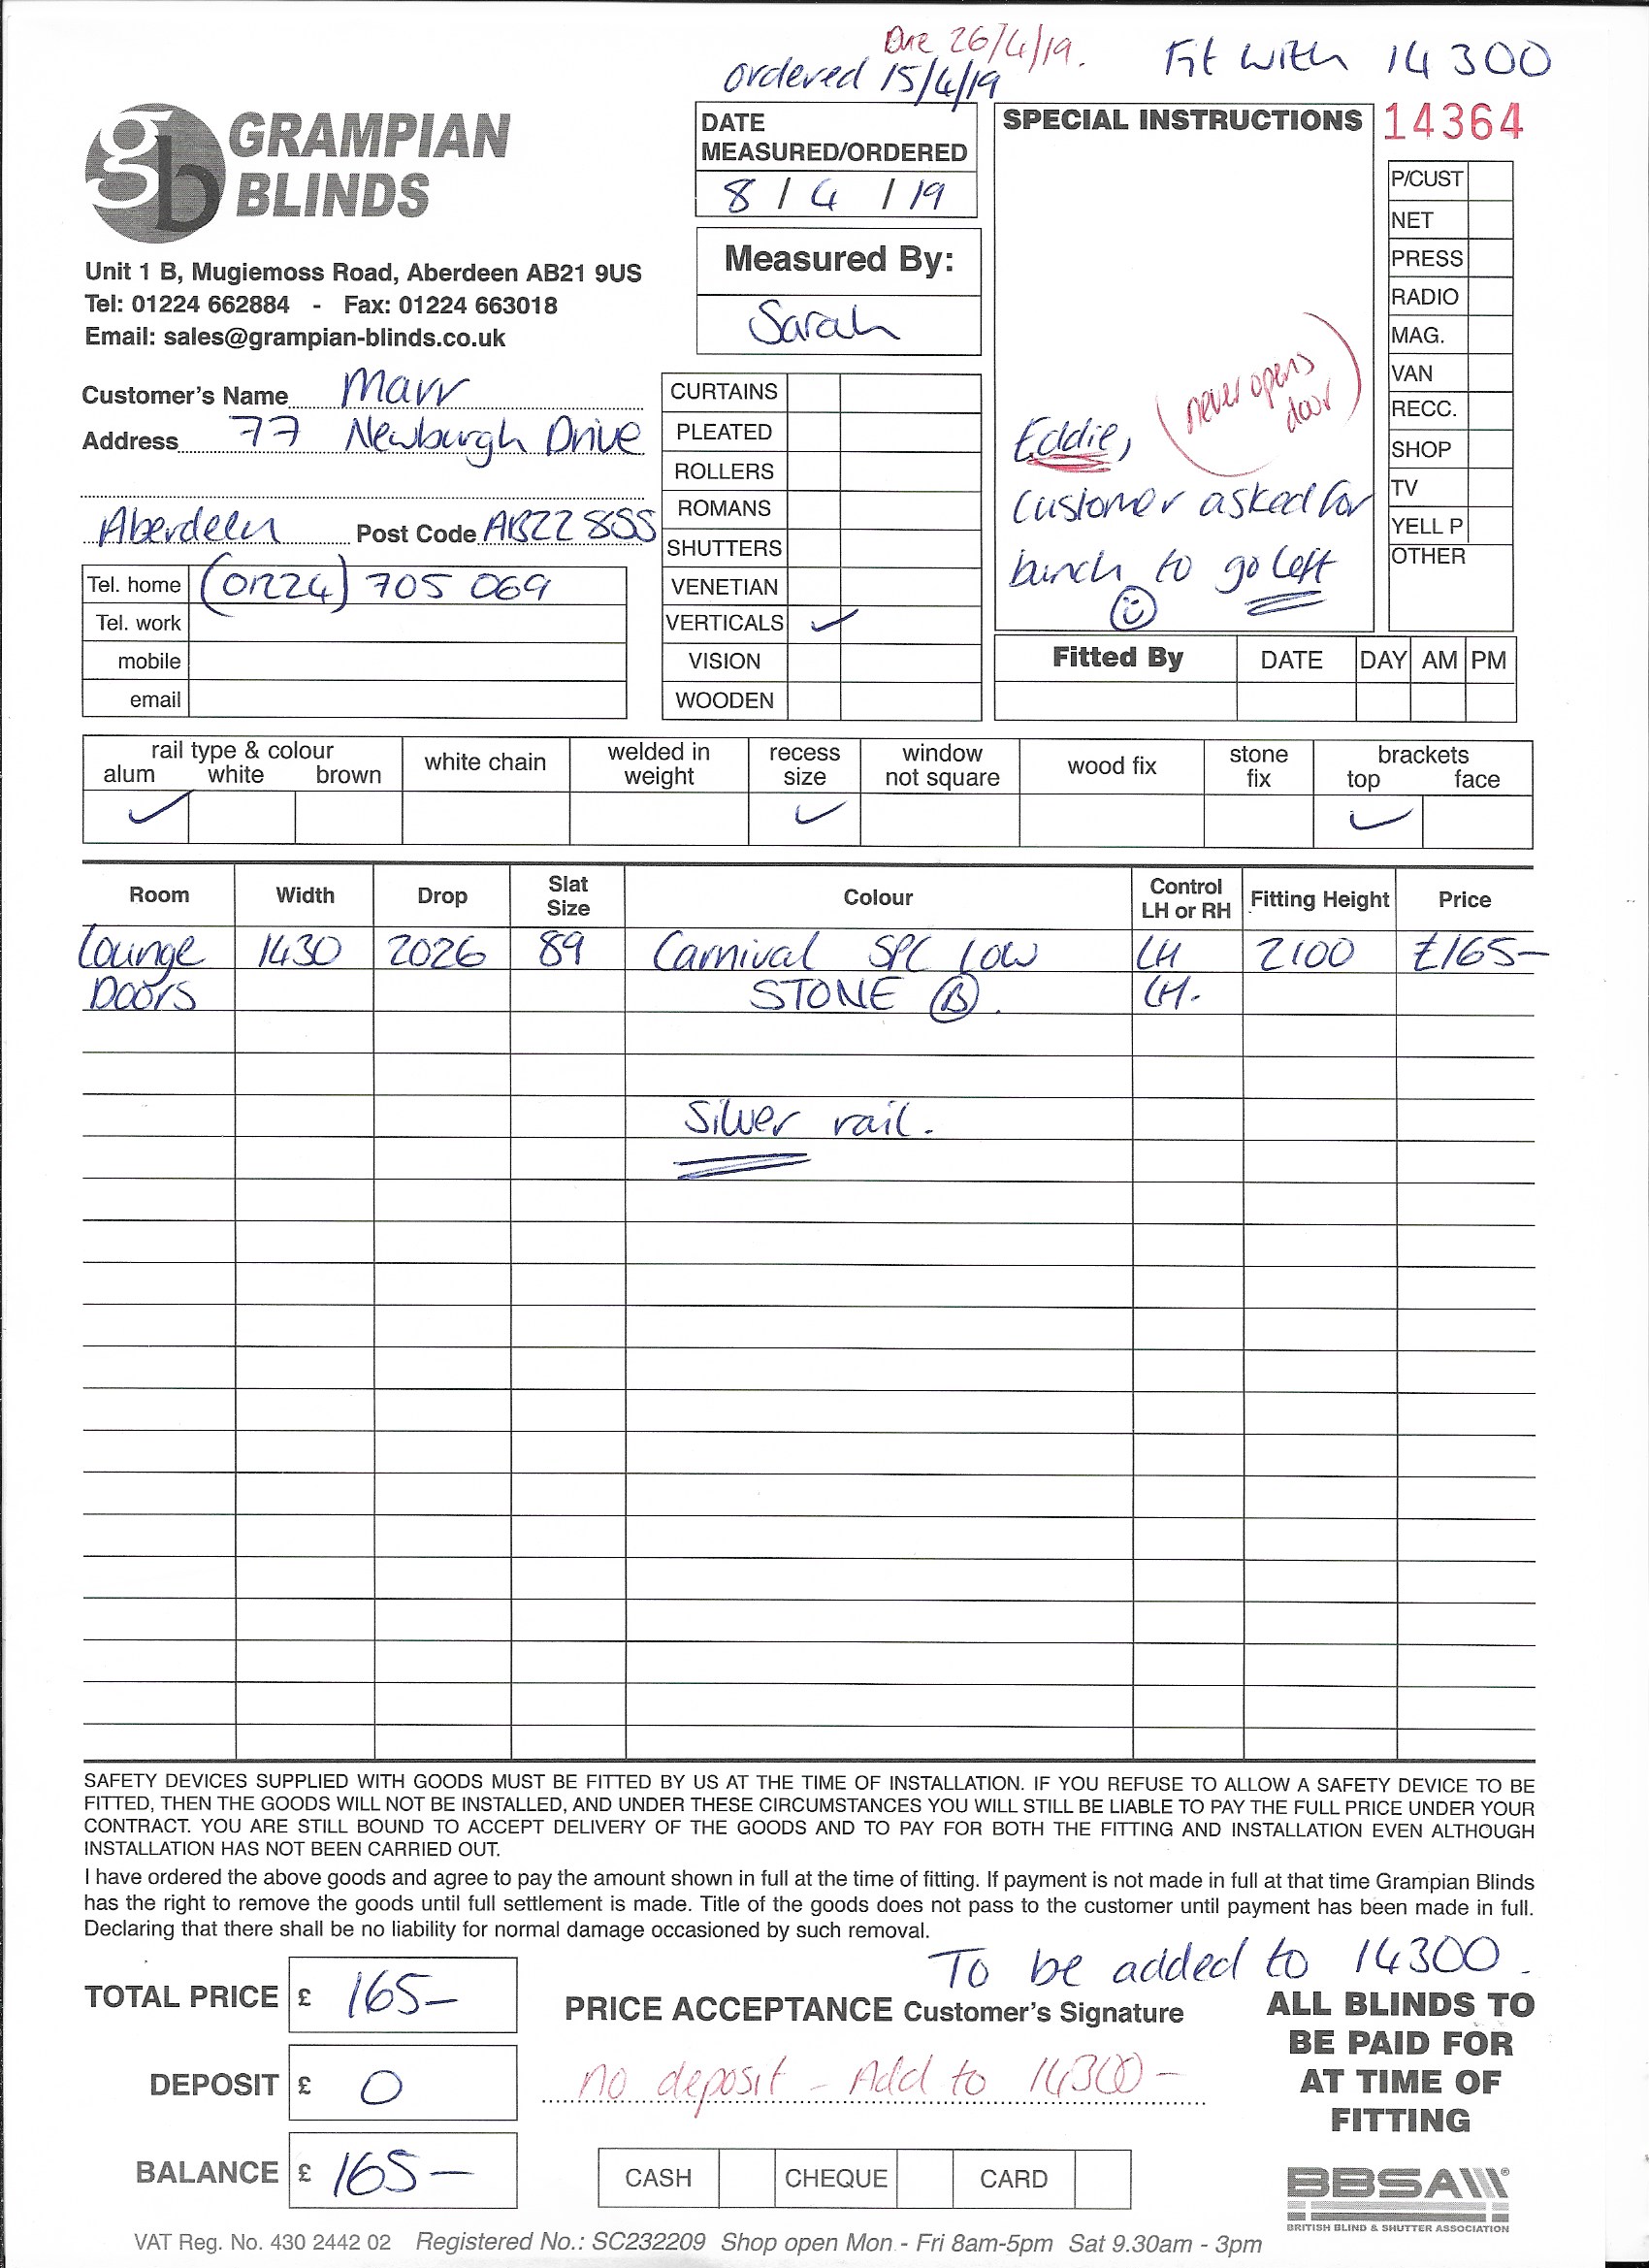 Due 26/4/19.
ordered 15/4/19
Fit with 14300
GRAMPIAN
BLINDS
Unit 1 B, Mugiemoss Road, Aberdeen AB21 9US
Tel: 01224 662884 - Fax: 01224 663018
Email: sales@grampian-blinds.co.uk
DATE
MEASURED/ORDERED
8 / 4 / 19
Measured By:
Sarah
SPECIAL INSTRUCTIONS
(never opens
door)
Eddie,
customer asked for
bunch to go left
14364
P/CUST
NET
PRESS
RADIO
MAG.
VAN
RECC.
SHOP
TV
YELL P
OTHER
Customer's Name Marr
Address 77 Newburgh Drive
Aberdeen Post Code AB22 8SS
Tel. home (01224) 705 069
Tel. work
mobile
email
CURTAINS
PLEATED
ROLLERS
ROMANS
SHUTTERS
VENETIAN
VERTICALS ✓
VISION
WOODEN
Fitted By DATE DAY AM PM
rail type & colour white chain welded in weight recess size window not square wood fix stone fix brackets
alum white brown top face
✓ ✓ ✓
Room Width Drop Slat Size Colour Control LH or RH Fitting Height Price
Lounge 1430 2026 89 Carnival SPC LOW LH 2100 £165-
Doors STONE Ⓑ. LH.
Silver rail.
SAFETY DEVICES SUPPLIED WITH GOODS MUST BE FITTED BY US AT THE TIME OF INSTALLATION. IF YOU REFUSE TO ALLOW A SAFETY DEVICE TO BE
FITTED, THEN THE GOODS WILL NOT BE INSTALLED, AND UNDER THESE CIRCUMSTANCES YOU WILL STILL BE LIABLE TO PAY THE FULL PRICE UNDER YOUR
CONTRACT. YOU ARE STILL BOUND TO ACCEPT DELIVERY OF THE GOODS AND TO PAY FOR BOTH THE FITTING AND INSTALLATION EVEN ALTHOUGH
INSTALLATION HAS NOT BEEN CARRIED OUT.
I have ordered the above goods and agree to pay the amount shown in full at the time of fitting. If payment is not made in full at that time Grampian Blinds
has the right to remove the goods until full settlement is made. Title of the goods does not pass to the customer until payment has been made in full.
Declaring that there shall be no liability for normal damage occasioned by such removal.
To be added to 14300.
TOTAL PRICE £ 165-
DEPOSIT £ 0
BALANCE £ 165-
PRICE ACCEPTANCE Customer's Signature
no deposit - Add to 14300-
CASH CHEQUE CARD
ALL BLINDS TO
BE PAID FOR
AT TIME OF
FITTING
BBSA
BRITISH BLIND & SHUTTER ASSOCIATION
VAT Reg. No. 430 2442 02 Registered No.: SC232209 Shop open Mon - Fri 8am-5pm Sat 9.30am - 3pm